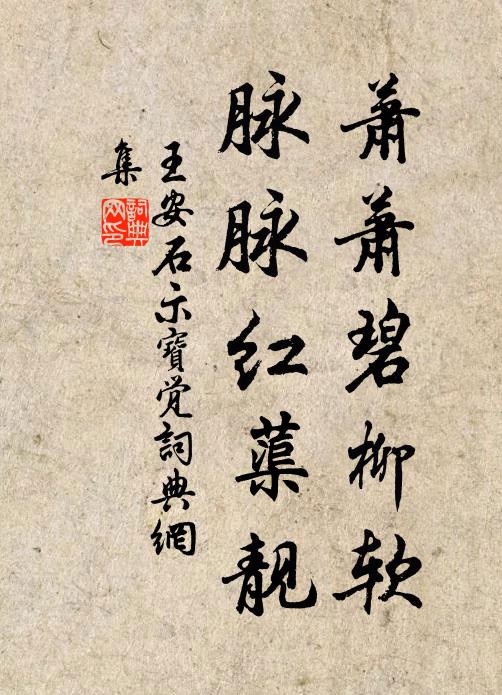 蕭蕭碧柳软
脉脉红蕖靓
王安石示寶觉詞典網
集
詞典
网印